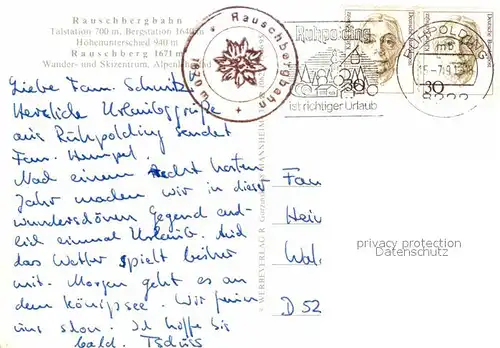 Rauschbergbahn
Talstation 700 m, Bergstation 1640 m
Höhenunterschied 940 m
Rauschberg 1671 m
Wander- und Skizentrum, Alpenlehrpfad
Rauschbergbahn
1672 m
Ruhpolding
ist richtiger Urlaub
RUHPOLDING
30
30
Liebe Fam. Schmitz
Herzliche Urlaubsgrüße
aus Ruhpolding sendet
Fam. Hempel.
Nach einem Recht harten
Jahr machen wir in dieser
wunderschönen Gegend end-
lich einmal Urlaub. Auch
das Wetter spielt bisher
mit. Morgen geht es an
dem Königsee. Wir freuen
uns schon. Ich hoffe bis
bald. Tschüss
WERBEVERLAG R. MANNHEIM
Fam
Hein
Wal.
D 52
privacy protection
Datenschutz